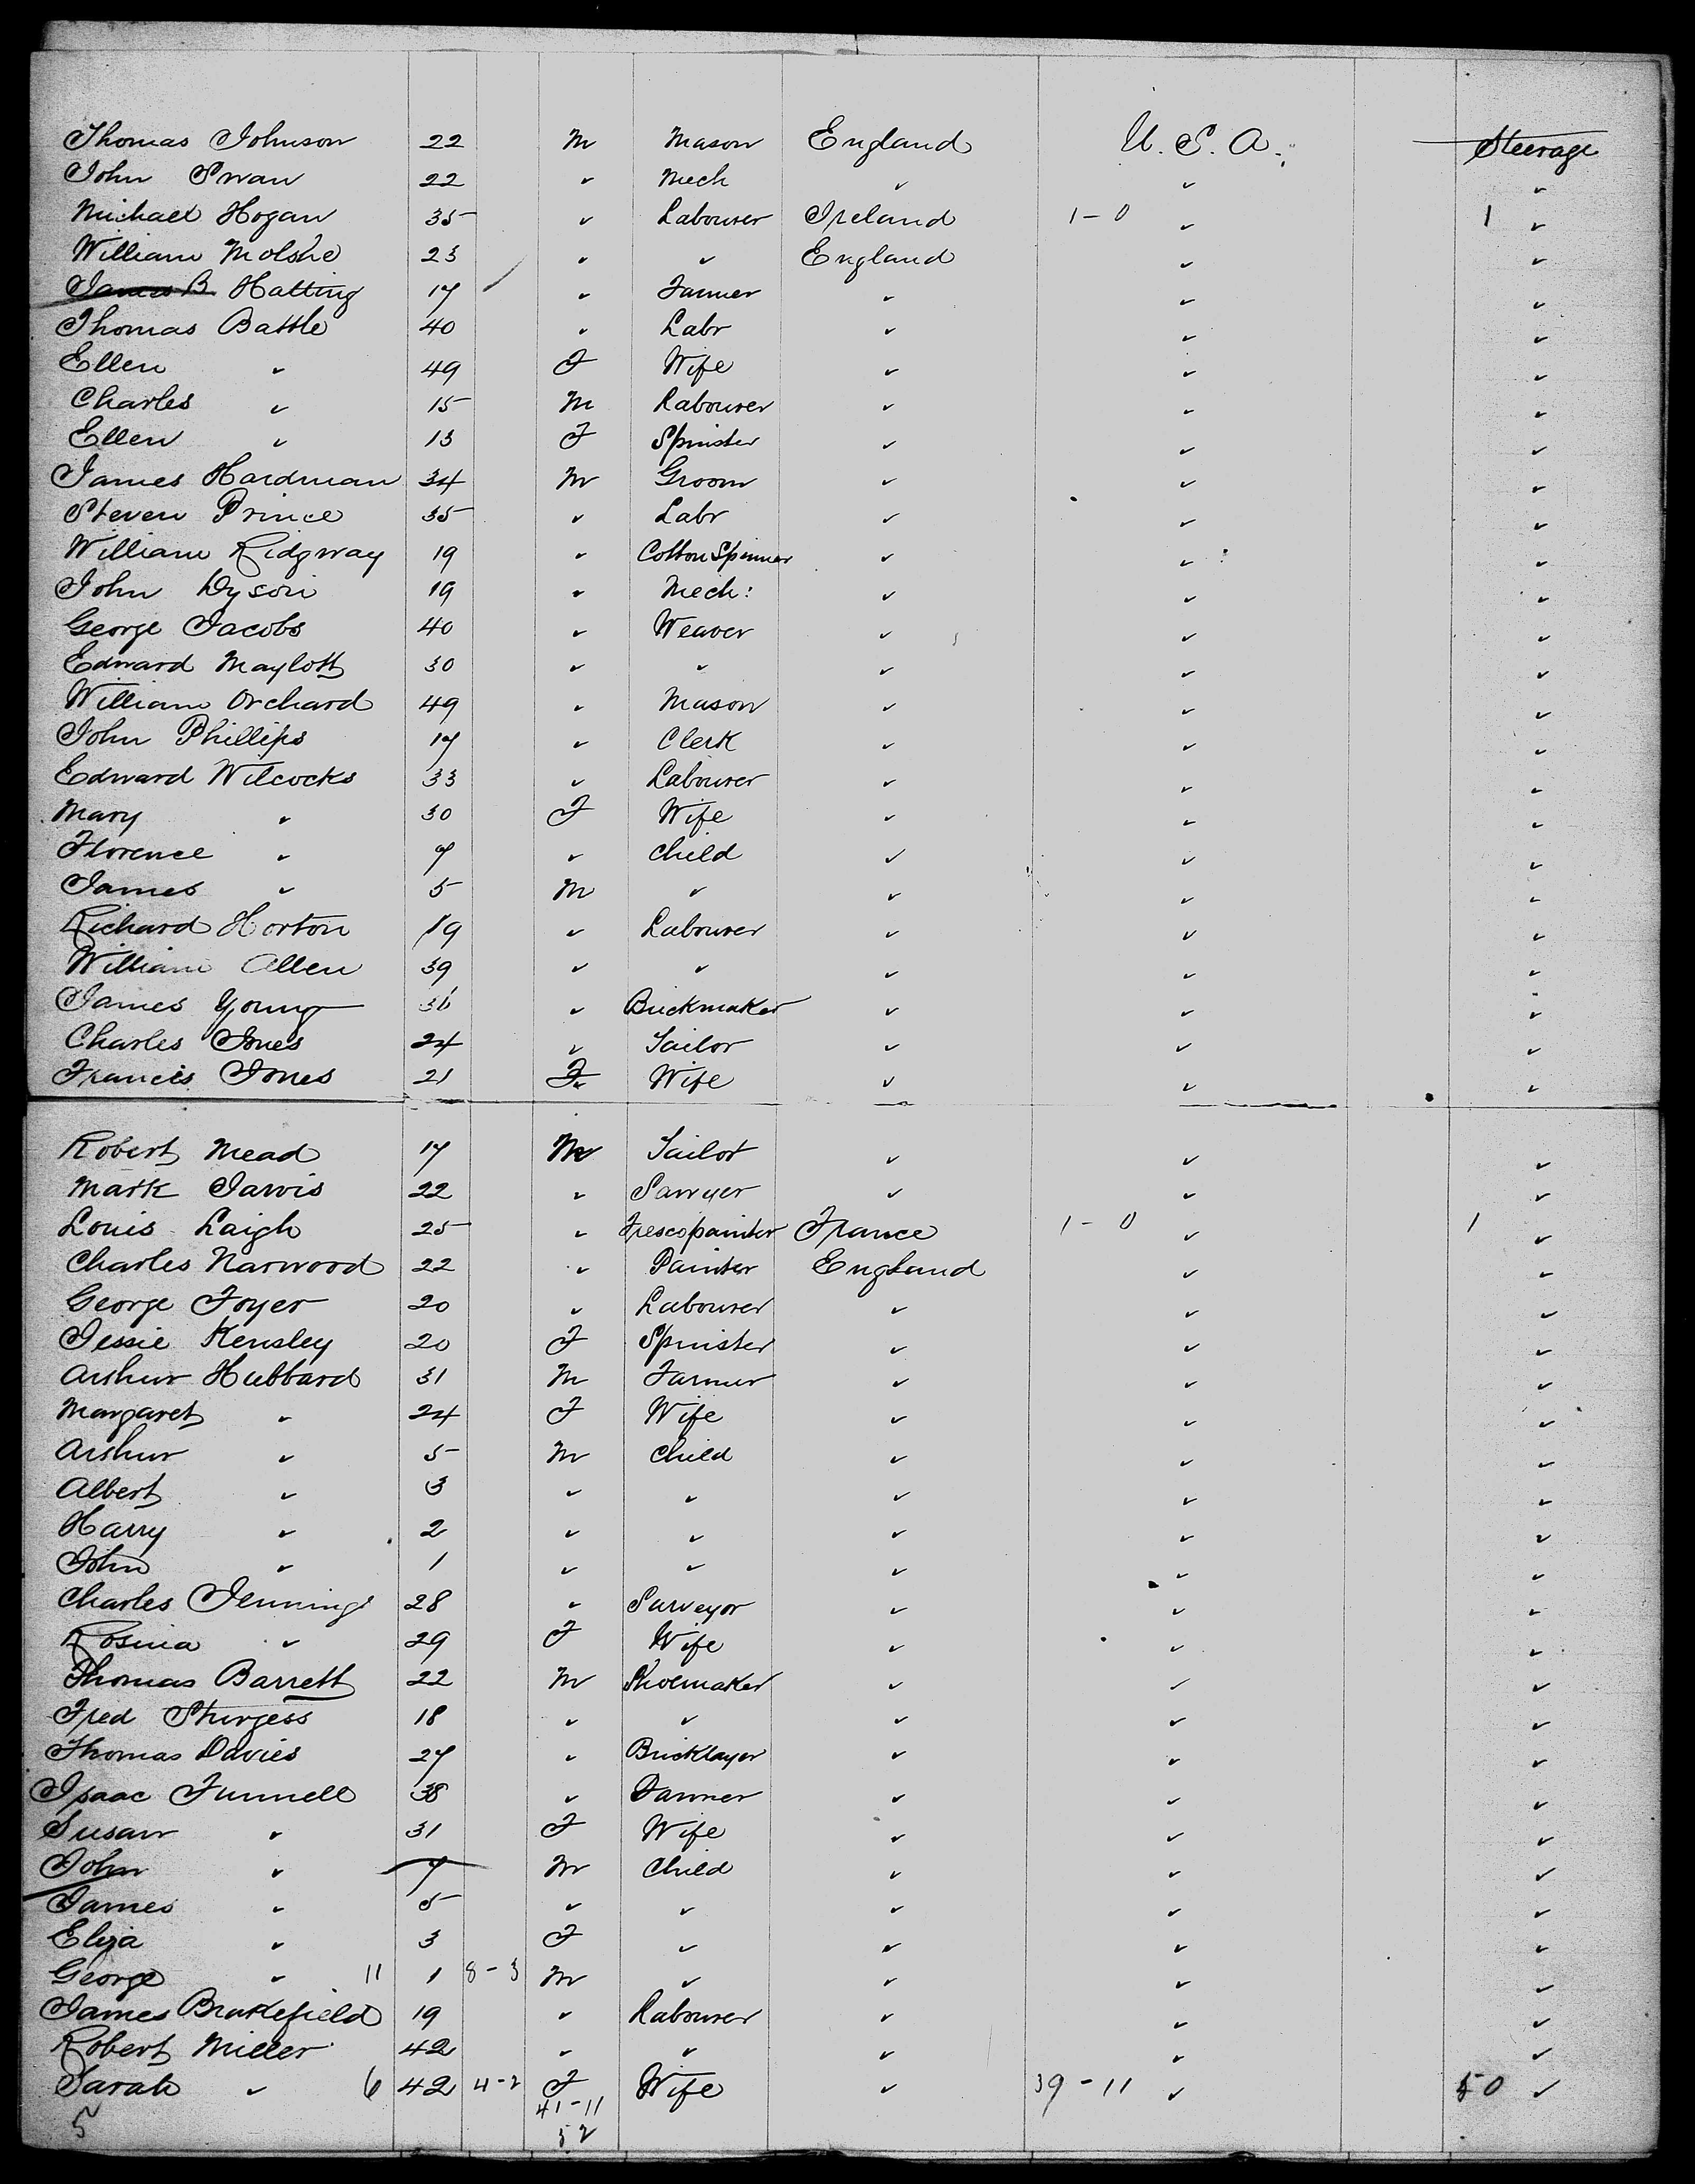 Thomas Johnson 22 M Mason England U.S.A. Steerage
John Swan 22 " Mech " " "
Michael Hogan 35 " Labourer Ireland 1-0 " 1 "
William Molshe 23 " " England " "
James B Hatting 17 " Farmer " " "
Thomas Battle 40 " Labr " " "
Ellen " 49 F Wife " " "
Charles " 15 M Labourer " " "
Ellen " 13 F Spinster " " "
James Hardman 34 M Groom " " "
Steven Prince 35 " Labr " " "
William Ridgway 19 " Cotton Spinner " " "
John Dyson 19 " Mech: " " "
George Jacobs 40 " Weaver " " "
Edward Maylott 30 " " " " "
William Orchard 49 " Mason " " "
John Phillips 17 " Clerk " " "
Edward Wilcocks 33 " Labourer " " "
Mary " 30 F Wife " " "
Florence " 7 " Child " " "
James " 5 M " " " "
Richard Horton 19 " Labourer " " "
William Allen 39 " " " " "
James Young 36 " Brickmaker " " "
Charles Jones 24 " Tailor " " "
Francis Jones 21 F Wife " " "
Robert Mead 17 M Tailor " " "
Mark Jarvis 22 " Sawyer " " "
Louis Laigh 25 " Frescopainter France 1-0 " 1 "
Charles Narwood 22 " Painter England " "
George Foyer 20 " Labourer " " "
Jessie Kensley 20 F Spinster " " "
Arthur Hubbard 31 M Farmer " " "
Margaret " 24 F Wife " " "
Arthur " 5 M Child " " "
Albert " 3 " " " " "
Harry " 2 " " " " "
John " 1 " " " " "
Charles Jennings 28 " Surveyor " " "
Rosina " 29 F Wife " " "
Thomas Barrett 22 M Shoemaker " " "
Fred Sturgess 18 " " " " "
Thomas Davies 27 " Bricklayer " " "
Isaac Funnell 38 " Farmer " " "
Susan " 31 F Wife " " "
John " 7 M Child " " "
James " 5 " " " " "
Eliza " 3 F " " " "
George " 11 1 8-3 M " " " "
James Brakefield 19 " Labourer " " "
Robert Miller 42 " " " " "
Sarah " 6 42 4-2 F Wife " 39-11 " 50 "
41-11
5 52